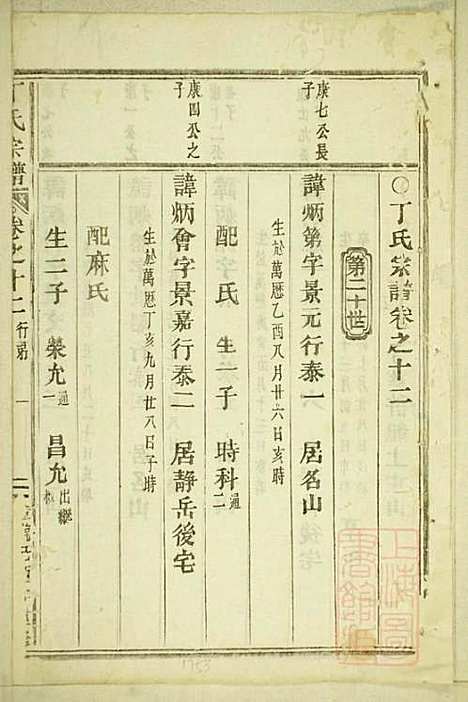 ○丁氏宗譜卷之十二
第二十世
康七公長子
諱炳第字景元行泰一 居名山
生於萬厯乙酉八月廿六日亥時
配李氏 生一子 時科通二
康四公之子
諱炳會字景嘉行泰二 居静岳後宅
生於萬厯丁亥九月廿八日子時
配麻氏
生二子 榮允通一 昌允出繼
丁氏宗譜 卷之十二 行第 一
上海圖書館藏